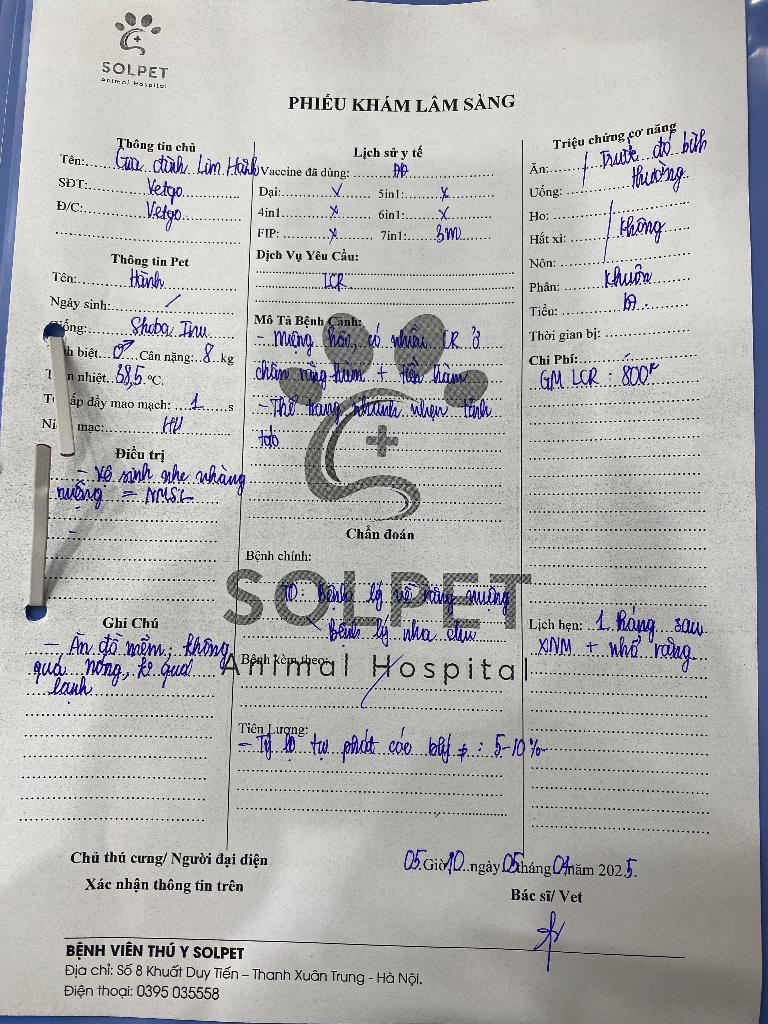 SOLPET
Animal Hospital
PHIẾU KHÁM LÂM SÀNG
Thông tin chủ
Tên: Gia đình Lâm Hành
SĐT: Vetgo
Đ/C: Vetgo
Thông tin Pet
Tên: Hành
Ngày sinh: /
Giống: Shiba Inu
biệt: ♂ Cân nặng: 8 kg
nhiệt: 38,5 °C.
ấp đầy mao mạch: 1 s
mạc: HH
Điều trị
- Vệ sinh nhẹ nhàng
miệng = NMSL
-
Ghi Chú
- Ăn đồ mềm, không
quá nóng, ko quá
lạnh
Lịch sử y tế
Vaccine đã dùng:
Dại: ✓ 5in1: x
4in1: x 6in1: x
FIP: x 7in1: 3m
Dịch Vụ Yêu Cầu:
LCR
Mô Tả Bệnh Cảnh:
- Miệng hôi, có nhiều CR ở
chân răng hàm + tiền hàm
- Thể trạng nhanh nhẹn tỉnh
táo
Chẩn đoán
Bệnh chính:
TD: Bệnh lý về răng miệng
Bệnh lý nha chu
Bệnh kèm theo:
Tiên Lượng:
- Tỷ lệ tự phát các blý ≠ : 5-10%
SOLPET
Animal Hospital
Triệu chứng cơ năng
Ăn: Trước đó bình
Uống: thường
Ho:
Hắt xì: không
Nôn:
Phân: khuôn
Tiểu:
Thời gian bị:
Chi Phí:
GM LCR : 800k
Lịch hẹn: 1 tháng sau
XNM + nhổ răng
Chủ thú cưng/ Người đại diện
Xác nhận thông tin trên
05 Giờ 10 ngày 05 tháng 04 năm 2025.
Bác sĩ/ Vet
BỆNH VIÊN THÚ Y SOLPET
Địa chỉ: Số 8 Khuất Duy Tiến – Thanh Xuân Trung - Hà Nội.
Điện thoại: 0395 035558